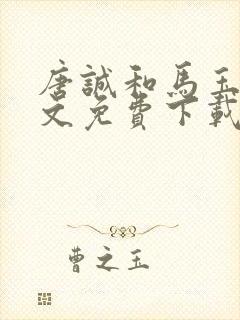 唐誠和馬玉
文免費下載
曹之玉